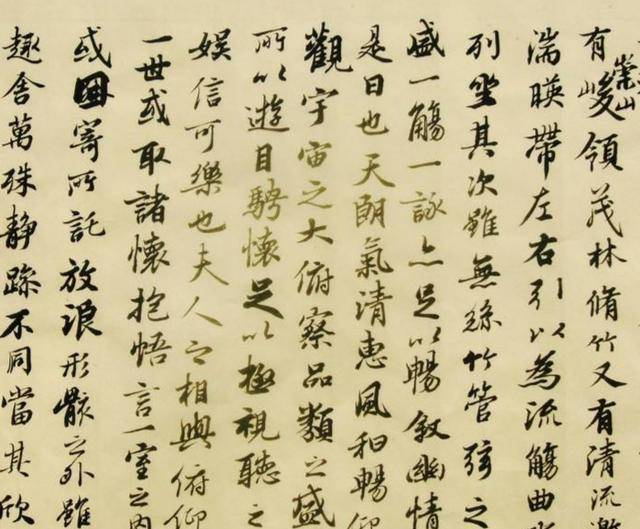 有崇山峻領茂林脩竹又有清流激
湍暎帶左右引以為流觴曲
列坐其次雖無絲竹管弦之
盛一觴一詠亦足以暢敘幽情
是日也天朗氣清惠風和暢仰
觀宇宙之大俯察品類之盛
所以遊目騁懷足以極視聽之
娛信可樂也夫人之相與俯仰
一世或取諸懷抱悟言一室之內
或因寄所託放浪形骸之外雖
趣舍萬殊静躁不同當其欣